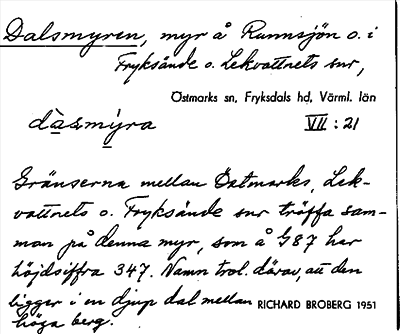 Dalsmyren, myr å Runnsjön o. i
Fryksände o. Lekvattnets snr,
Östmarks sn, Fryksdals hd, Värml. län
dàsmýra VII : 21
Gränserna mellan Östmarks, Lek-
vattnets o. Fryksände snr träffa sam-
man på denna myr, som å G87 har
höjdsiffra 347. Namn trol. därav, att den
ligger i en djup dal mellan RICHARD BROBERG 1951
höga berg.